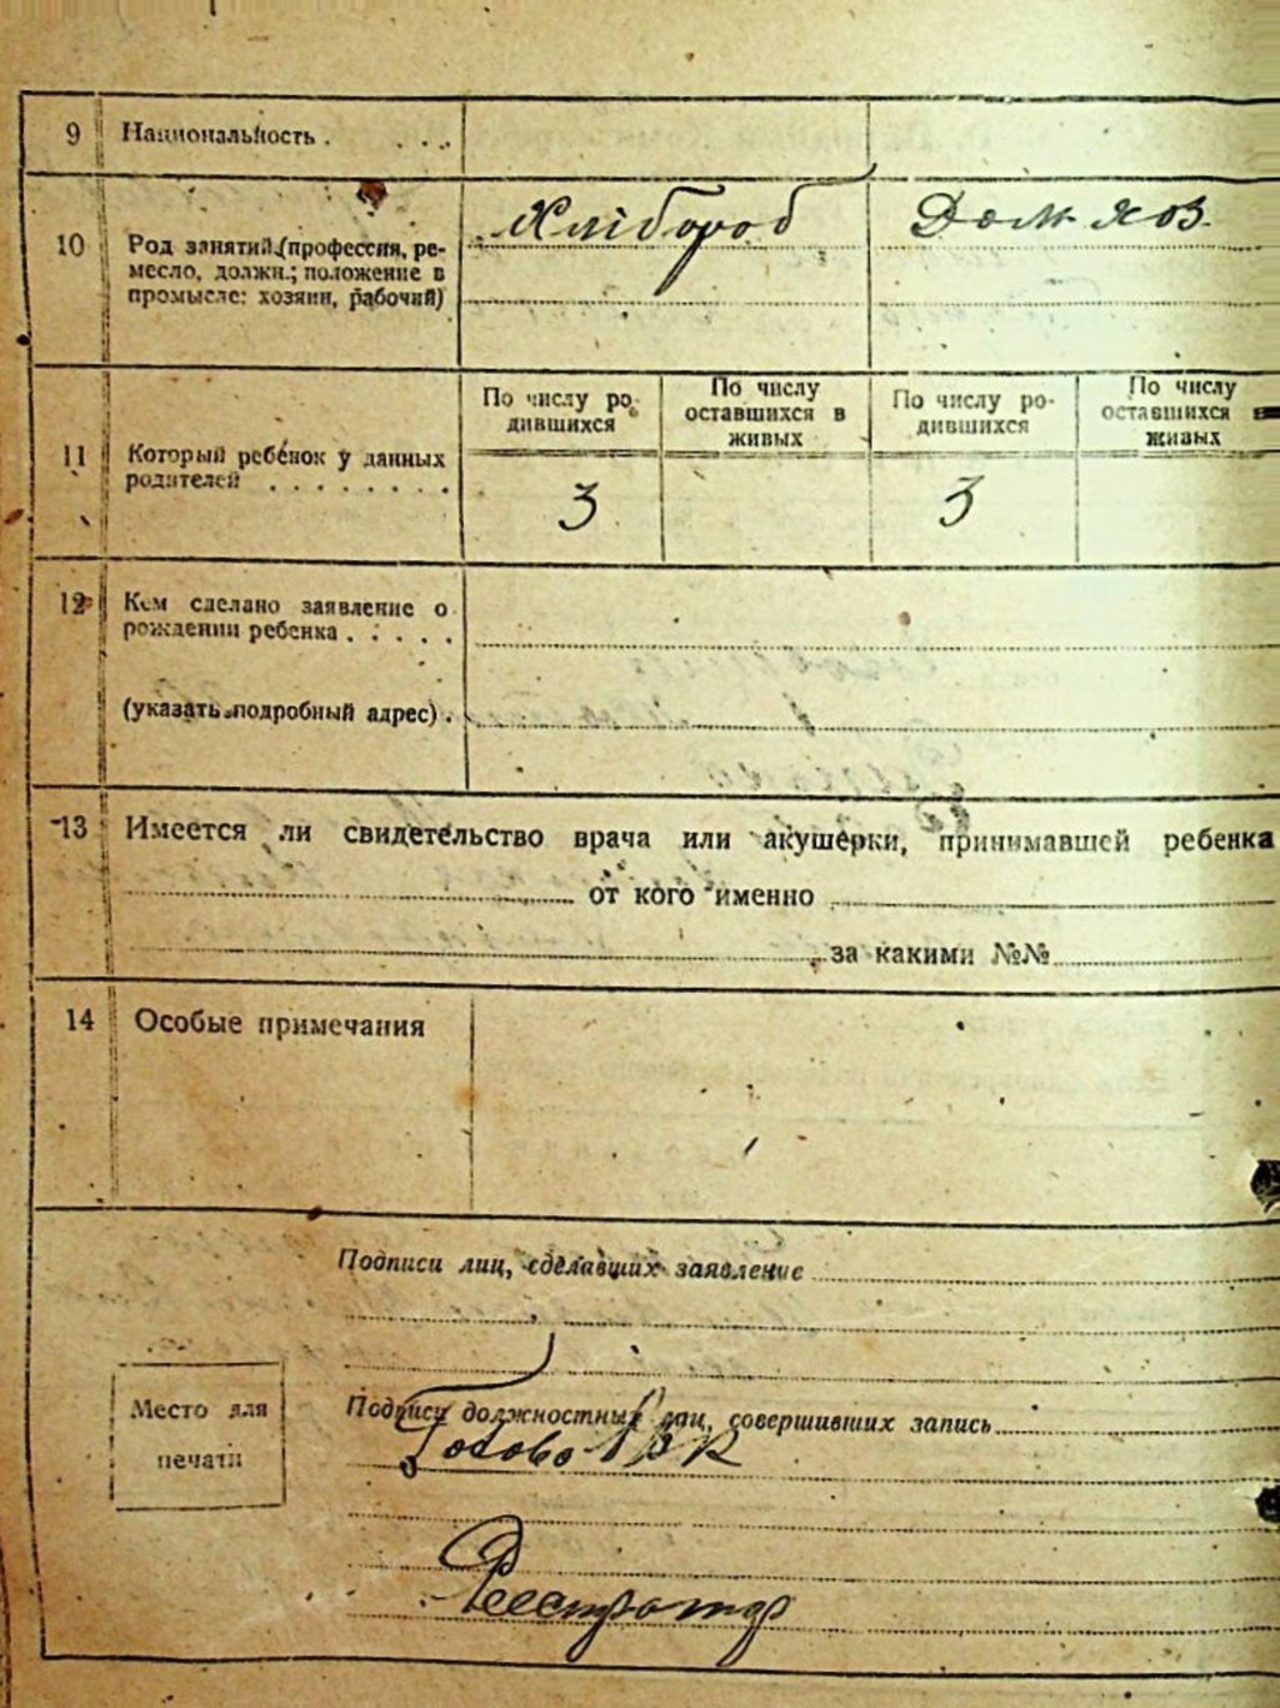 9 Национальность . . . .
10 Род занятий (профессия, ре-
месло, должн.; положение в
промысле: хозяин, рабочий)
Хлібороб
Дом хоз.
11 Который ребёнок у данных
родителей . . . . . . . .
По числу ро-
дившихся
По числу
оставшихся в
живых
По числу ро-
дившихся
По числу
оставшихся в
живых
3
3
12 Кем сделано заявление о
рождении ребенка . . . . .
(указать подробный адрес) .
13 Имеется ли свидетельство врача или акушерки, принимавшей ребенка
от кого именно
за какими №№
14 Особые примечания
Подписи лиц, сделавших заявление
Место для
печати
Подписи должностных лиц, совершивших запись
Голова
Реестратор